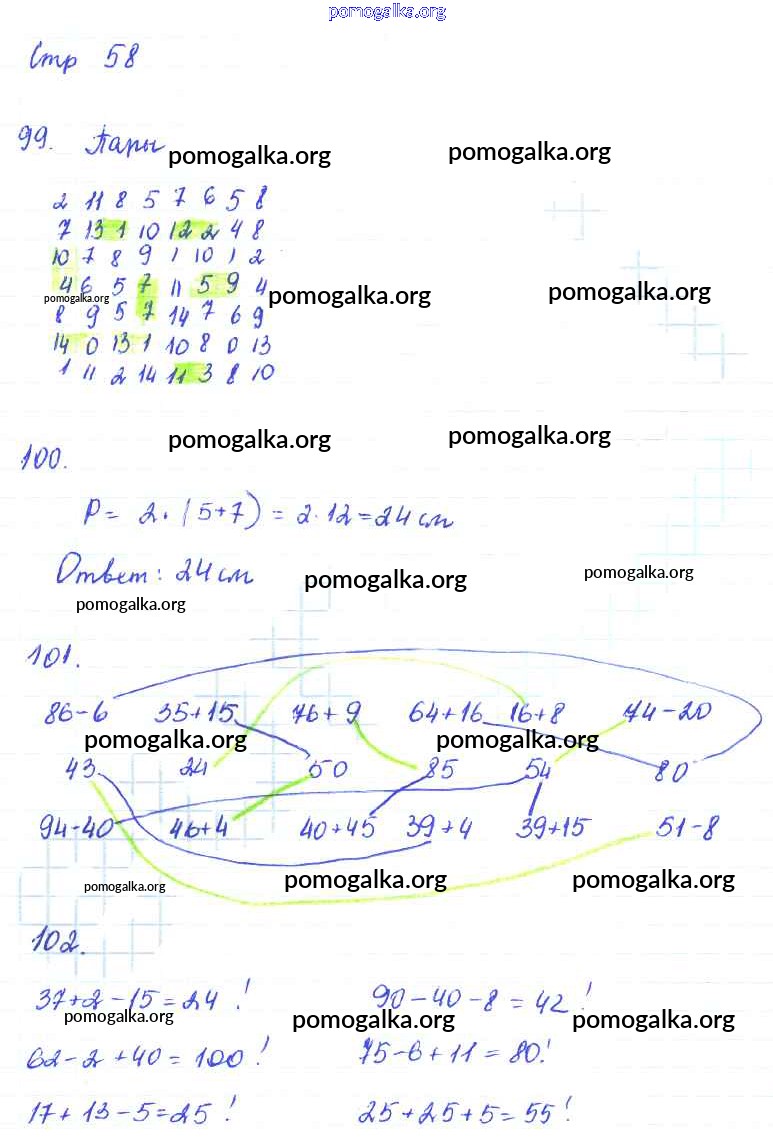 pomogalka.org
Стр 58
99. Пары
pomogalka.org pomogalka.org
2 11 8 5 7 6 5 8
7 13 1 10 12 2 4 8
10 7 8 9 1 10 1 2
4 6 5 7 11 5 9 4
pomogalka.org pomogalka.org pomogalka.org
8 9 5 7 14 7 6 9
14 0 13 1 10 8 0 13
1 11 2 14 11 3 8 10
pomogalka.org pomogalka.org
100.
P = 2 · (5+7) = 2·12=24 см
Ответ: 24 см
pomogalka.org pomogalka.org
pomogalka.org
101.
86-6 35+15 76+9 64+16 16+8 74-20
pomogalka.org pomogalka.org
43 24 50 85 54 80
94-40 46+4 40+45 39+4 39+15 51-8
pomogalka.org pomogalka.org pomogalka.org
102.
37+2-15=24 ! 90-40-8=42 !
pomogalka.org pomogalka.org pomogalka.org
62-2+40=100 ! 75-6+11=80!
17+13-5=25 ! 25+25+5=55 !